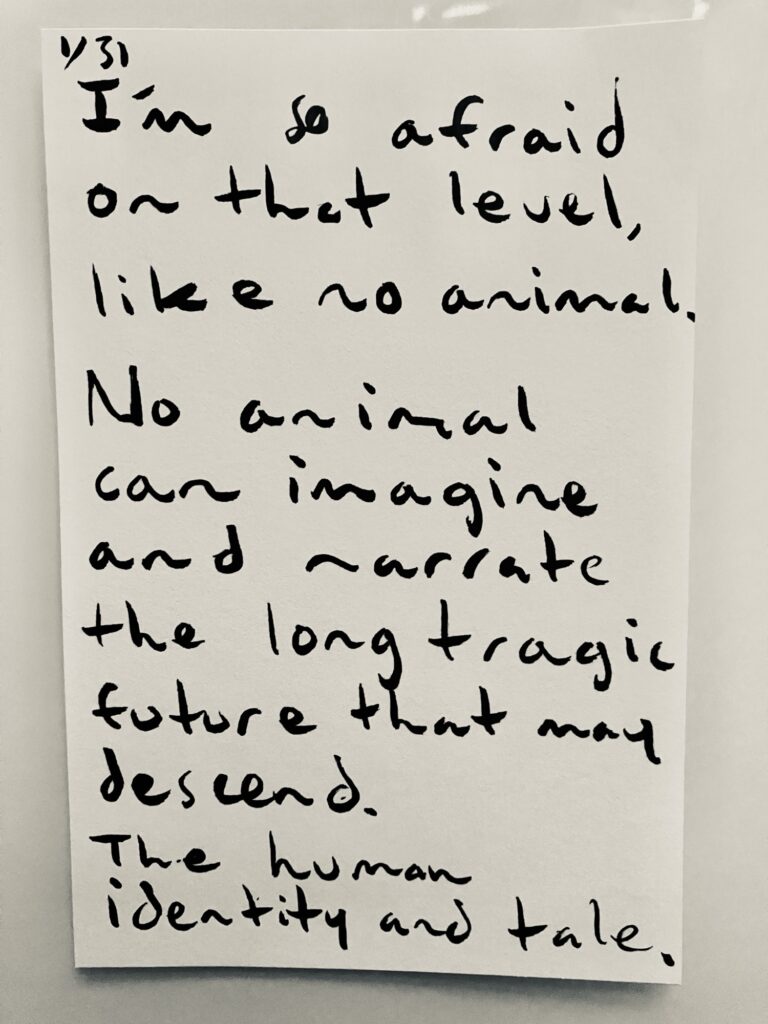 1/31
I'm so afraid
on that level,
like no animal.
No animal
can imagine
and narrate
the long tragic
future that may
descend.
The human
identity and tale.